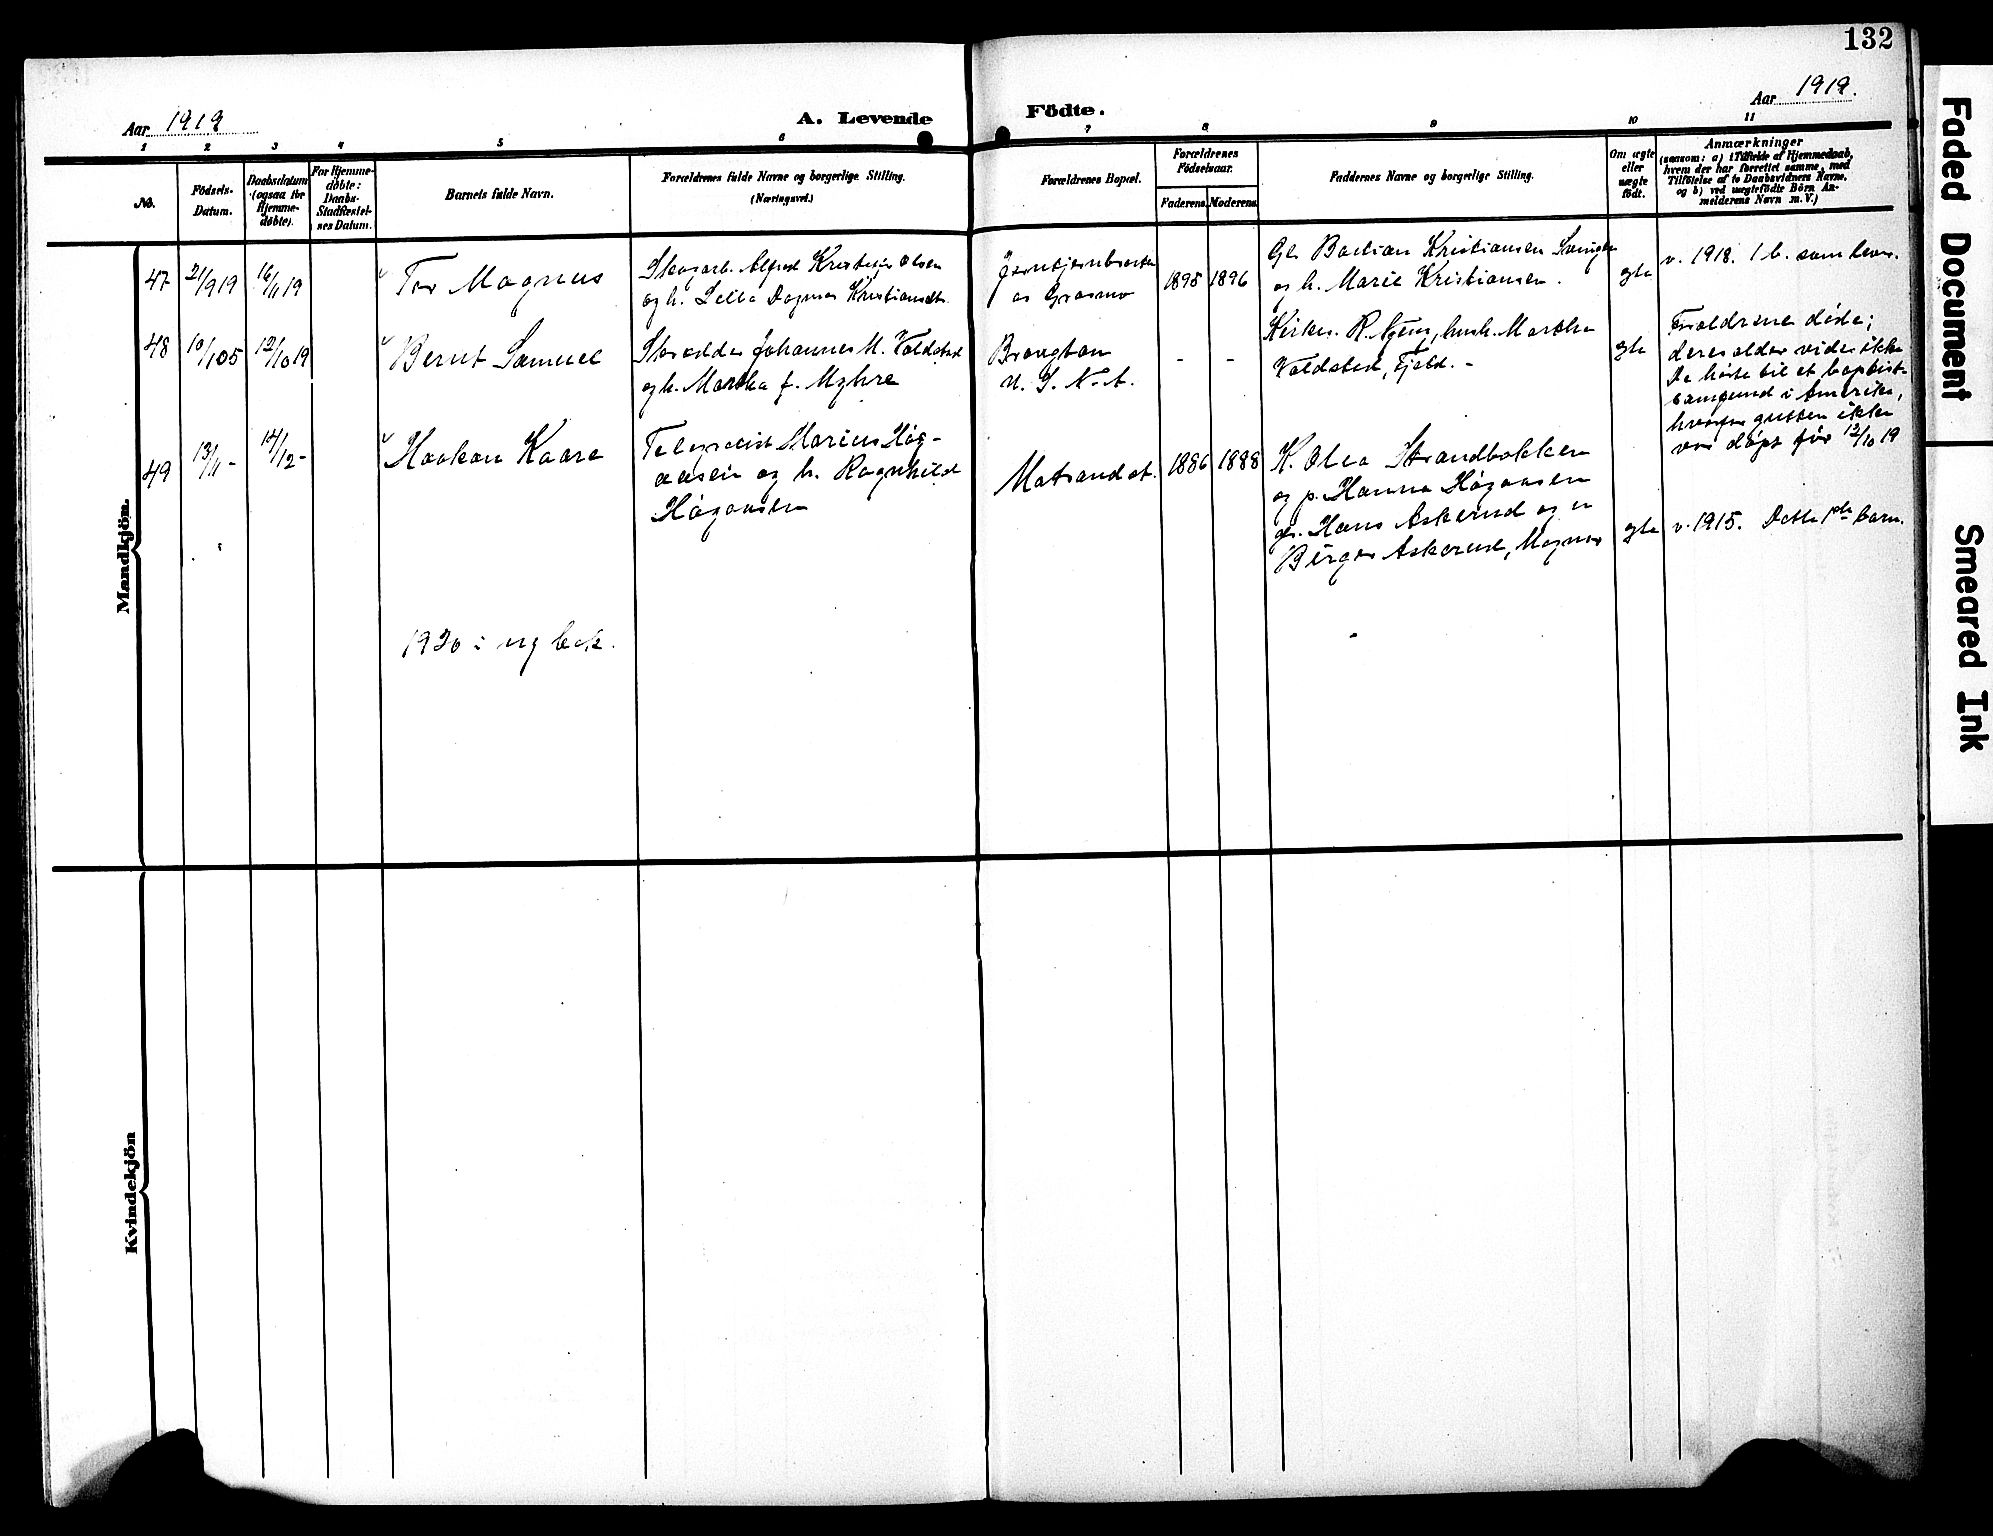 132
Aar 1919
A. Levende Födte.
Aar 1919.
1 2 3 4 5 6 7 8 9 10 11
No.
Födsels-
Datum.
Daabsdatum
(ogsaa for
Hjemme-
døbte).
For Hjemme-
døbte:
Daabs-
Stadfæstel-
ses Datum.
Barnets fulde Navn.
Forældrenes fulde Navne og borgerlige Stilling.
(Næringsvei.)
Forældrenes Bopæl.
Forældrenes
Födselsaar.
Faderens. Moderens.
Faddernes Navne og borgerlige Stilling.
Om ægte
eller
uægte
födt.
Anmærkninger
(saasom: a) i Tilfælde af Hjemmedaab,
hvem der har forrettet samme, med
Tilföielse af to Daabsvidners Navne,
og b) ved uægtefödte Börn An-
melderens Navn m. V.)
Mandkjön.
47
21/9 19
16/11 19
Tor Magnus
Skogarb. Alfred Kristian Olsen
og h. Dagmar Kristiansdtr.
1895 1896
Gbr. Bastian Kristiansen
og h. Marie Kristiansen.
gte
v. 1918. 1 b. som lever.
48
10/1 05
12/10 19
Bernt Samuel
Skrædder Johannes M. Valdsted
og h. Martha f. Myhre
Brougton
U. S. N. A.
- -
Kirkes. R. husk. Martha
Valdsted, Fjeld. -
gte
Forældrene døde;
deres alder vides ikke
De hørte til et baptist-
samfund i Amerika,
hvorfor gutten ikke
var døpt før 12/10 19
49
13/11 -
14/12 -
Haakon Kaare
Telegrafist Marius Høg-
aasen og h. Ragnhild
Høgaasen
Matrand st.
1886 1888
K. Olea Strandbakken
og p. Hanna Høgaasen
gbr. Hans Askerud og u
Birger Askerud, Magnor
gte
v. 1915. Dette 1ste barn.
1920 i ny bok.
Kvindekjön
Faded Document
Smeared Ink